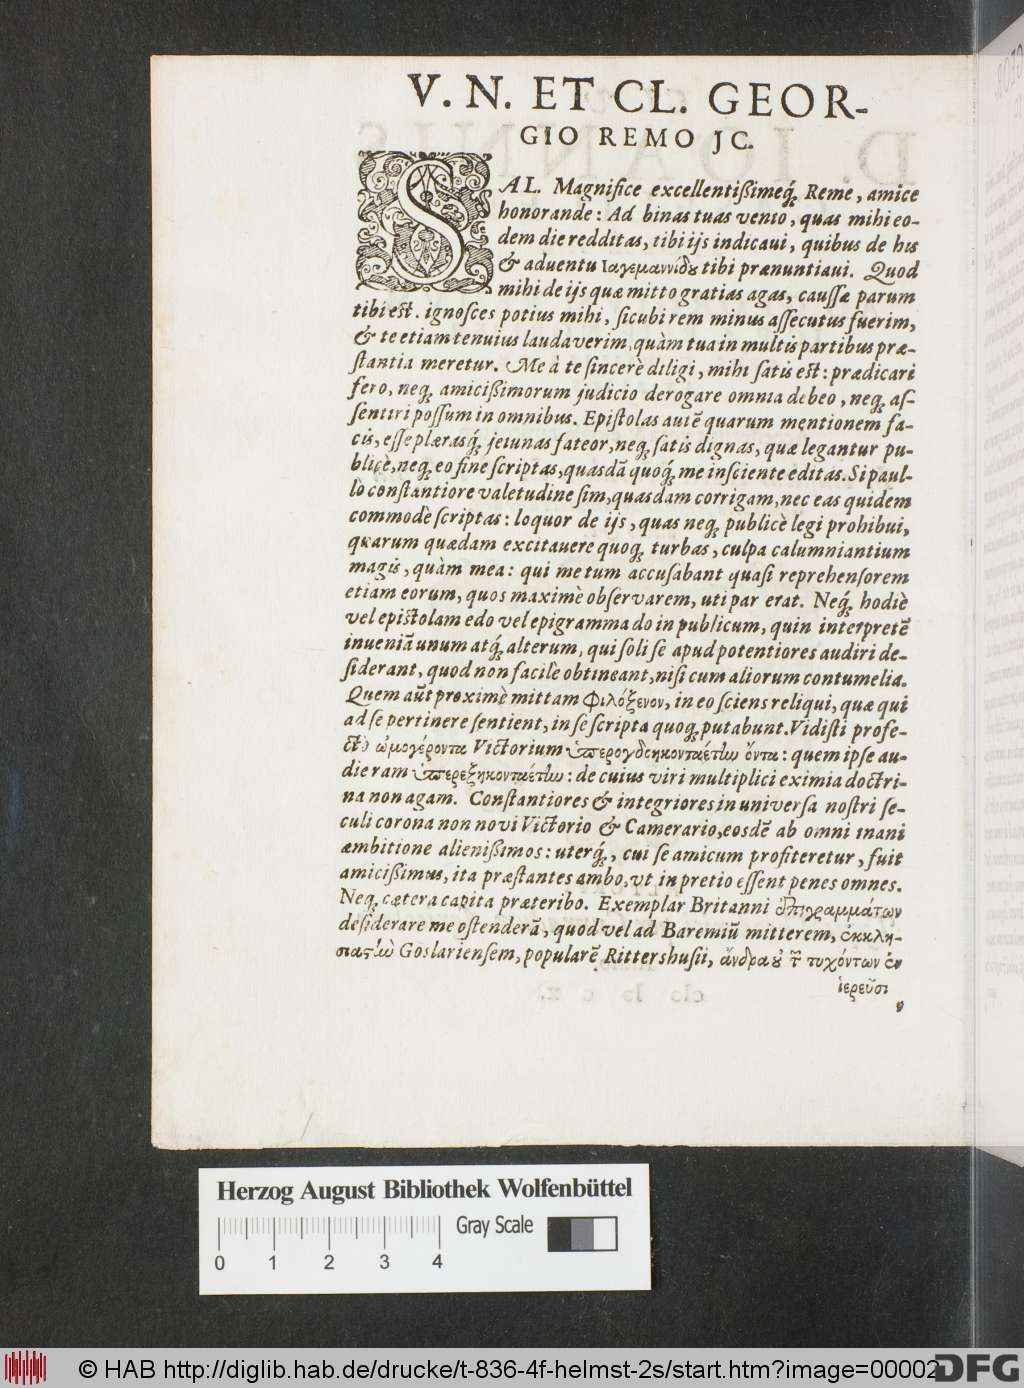 V. N. ET CL. GEOR-
GIO REMO JC.
SAL. Magnifice excellentißimeq́; Reme, amice
honorande: Ad binas tuas venio, quas mihi eo-
dem die redditas, tibi ijs indicaui, quibus de his
& aduentu Ιαγεμαννίδου tibi prænuntiaui. Quod
mihi de ijs quæ mitto gratias agas, caussæ parum
tibi est. ignosces potius mihi, sicubi rem minus assecutus fuerim,
& te etiam tenuius laudaverim, quàm tua in multis partibus præ-
stantia meretur. Me à te sincerè diligi, mihi satis est: prædicari
fero, neq; amicißimorum judicio derogare omnia debeo, neq; as-
sentiri possum in omnibus. Epistolas autē quarum mentionem fa-
cis, esse plærasq́; jeiunas fateor, neq; satis dignas, quæ legantur pu-
blicè, neq; eo fine scriptas, quasdā quoq́; me insciente editas. Si paul-
lò constantiore valetudine sim, quasdam corrigam, nec eas quidem
commodè scriptas: loquor de ijs, quas neq; publicè legi prohibui,
quarum quædam excitauere quoq; turbas, culpa calumniantium
magis, quàm mea: qui me tum accusabant quasi reprehensorem
etiam eorum, quos maximè observarem, uti par erat. Neq́; hodiè
vel epistolam edo vel epigramma do in publicum, quin interpretē
inueniā unum atq́; alterum, qui soli se apud potentiores audiri de-
siderant, quod non facilè obtineant, nisi cum aliorum contumelia.
Quem aūt proximè mittam Φιλόξενον, in eo sciens reliqui, quæ qui
ad se pertinere sentient, in se scripta quoq; putabunt. Vidisti profe-
ctò ὠμογέροντα Victorium ὑπερογδοηκονταέτην ὄντα: quem ipse au-
dieram ὑπερεξηκονταέτην: de cuius viri multiplici eximia doctri-
na non agam. Constantiores & integriores in universa nostri se-
culi corona non novi Victorio & Camerario, eosdē ab omni inani
æmbitione alienißimos: uterq́;, cui se amicum profiteretur, fuit
amicißimus, ita præstantes ambo, vt in pretio essent penes omnes.
Neq; cætera capita præteribo. Exemplar Britanni ἐπιγραμμάτων
desiderare me ostenderā, quod vel ad Baremiū mitterem, ἐκκλη-
σιαστὴν Goslariensem, popularē Rittershusii, ἄνδρα οὐ τῶν τυχόντων ἐν
ἱερεῦσι
Herzog August Bibliothek Wolfenbüttel
Gray Scale
0 1 2 3 4
© HAB http://diglib.hab.de/drucke/t-836-4f-helmst-2s/start.htm?image=00002
DFG